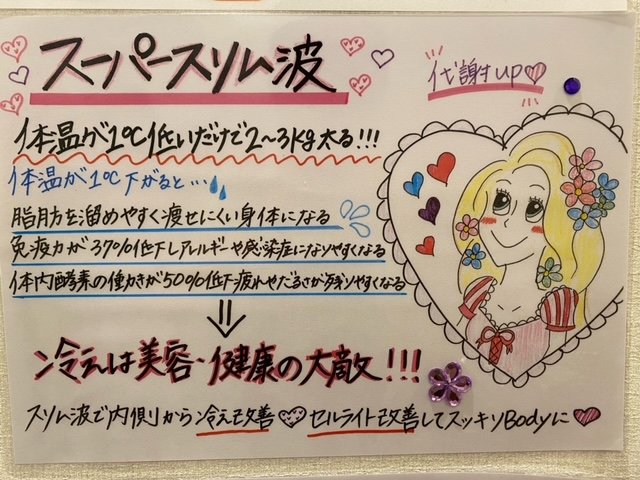 スーパースリム波
代謝up♡
体温が1℃低いだけで2～3kg太る!!!
体温が1℃下がると…
脂肪を溜めやすく痩せにくい身体になる
免疫力が37%低下しアレルギーや感染症になりやすくなる
体内酵素の働きが50%低下疲れやだるさが残りやすくなる
⇓
冷えは美容・健康の大敵!!!
スリム波で内側から冷え改善♡セルライト改善してスッキリBodyに♡